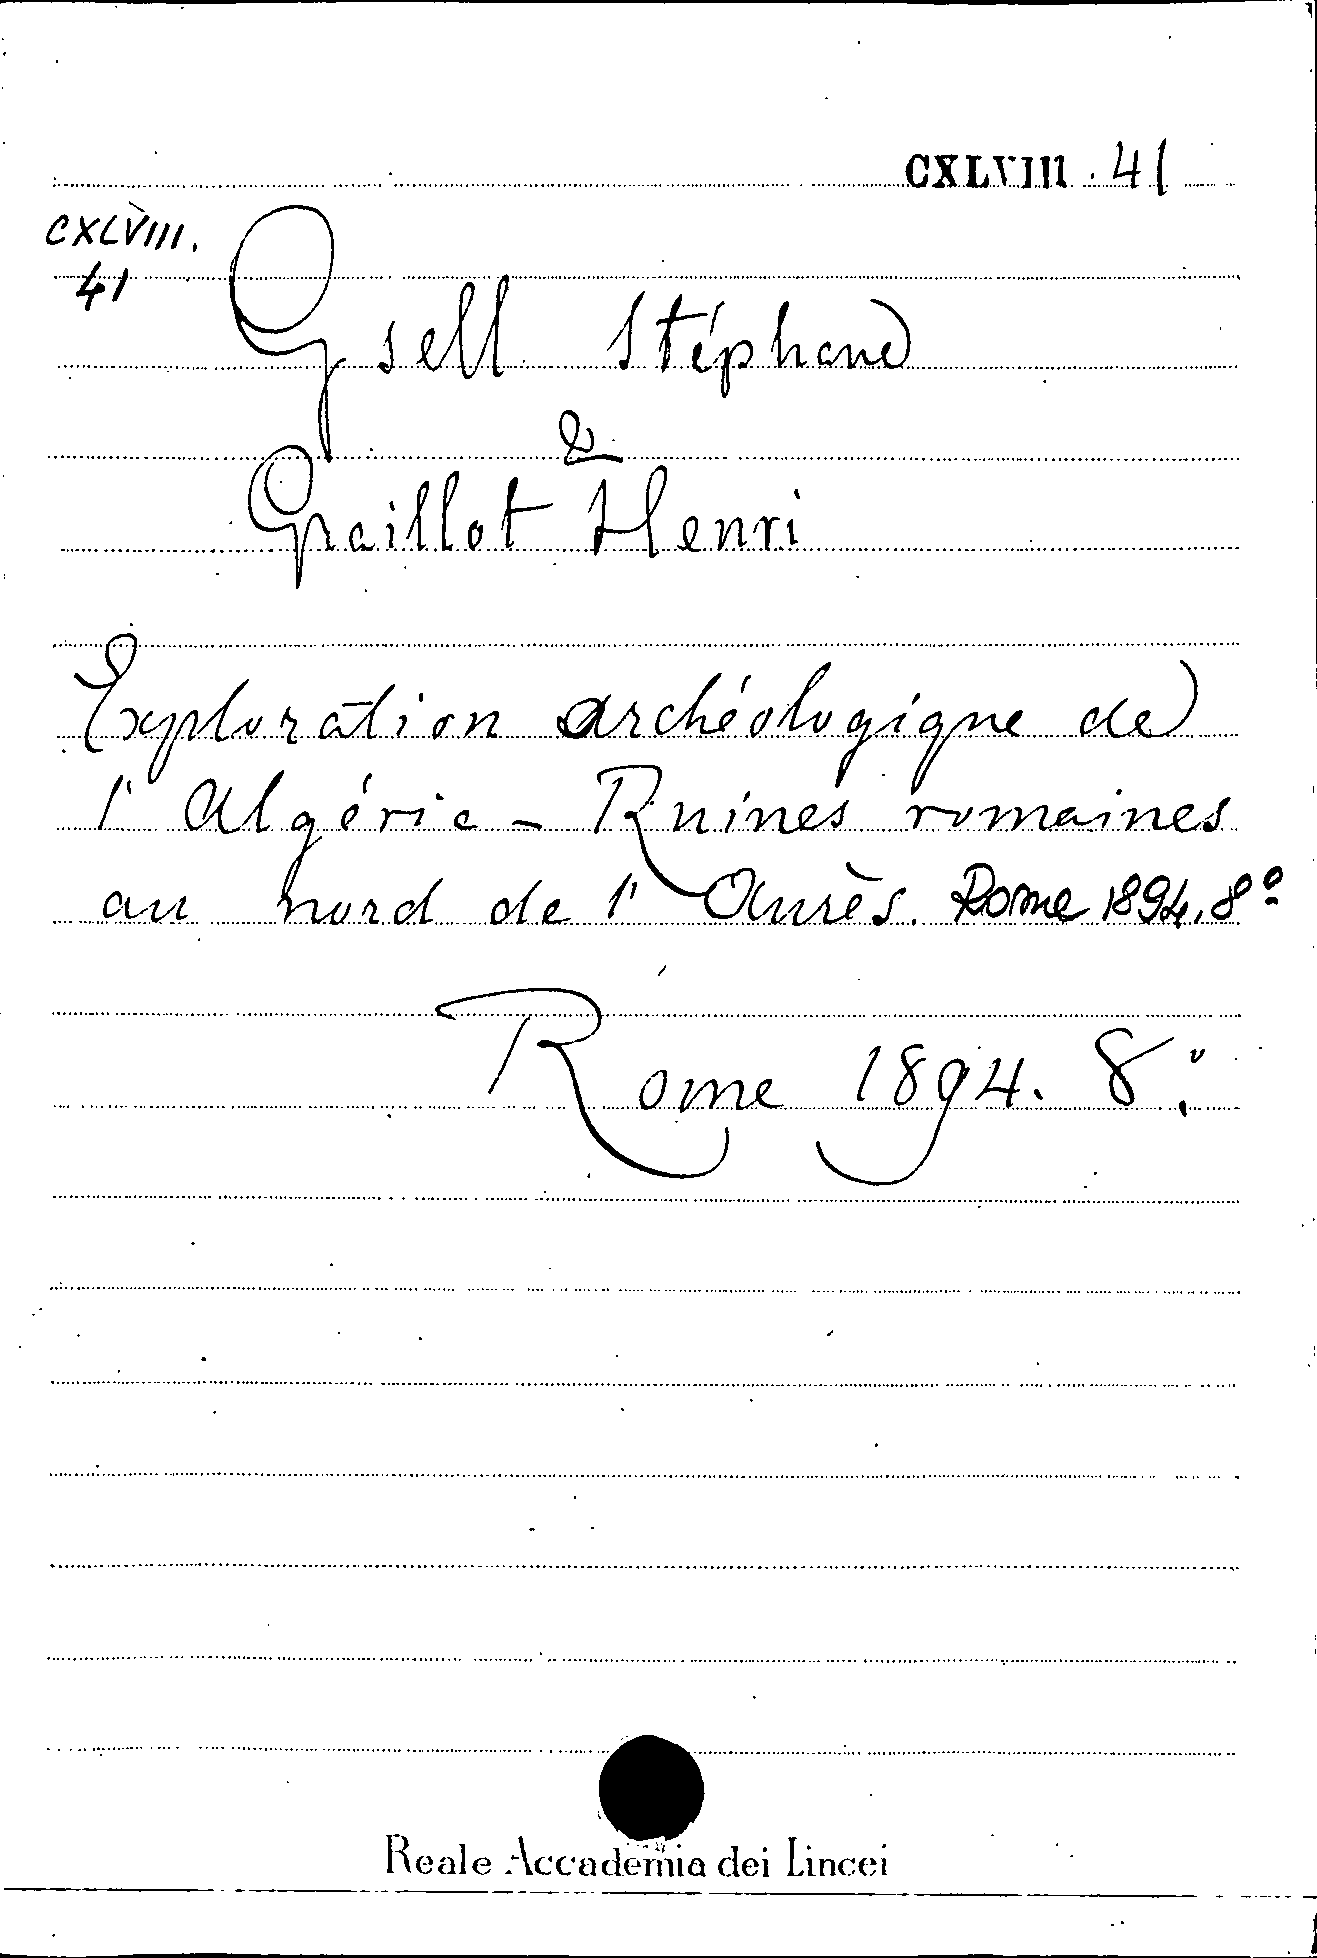 CXLVIII. 41
CXLVIII.
41
Gsell Stéphane
&
Graillot Henri
Exploration archéologique de
l'Algérie - Ruines romaines
au nord de l'Aurès. Rome 1894, 8º
Rome 1894. 8º
Reale Accademia dei Lincei